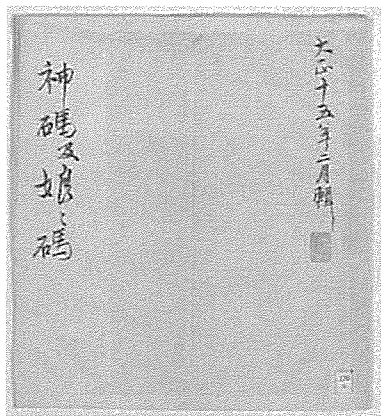 大正十五年二月輯
神碼及娘〻碼